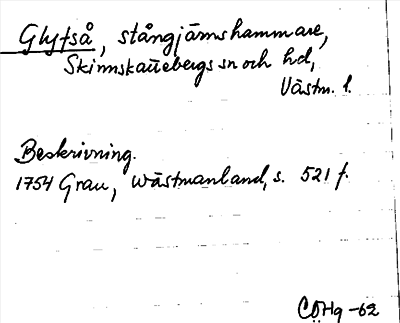 Glyfså, stångjärnshammare,
Skinnskattebergs sn och hd,
Västm. l.
Beskrivning.
1754 Grau, Wästmanland, s. 521 f.
CÖHg -62